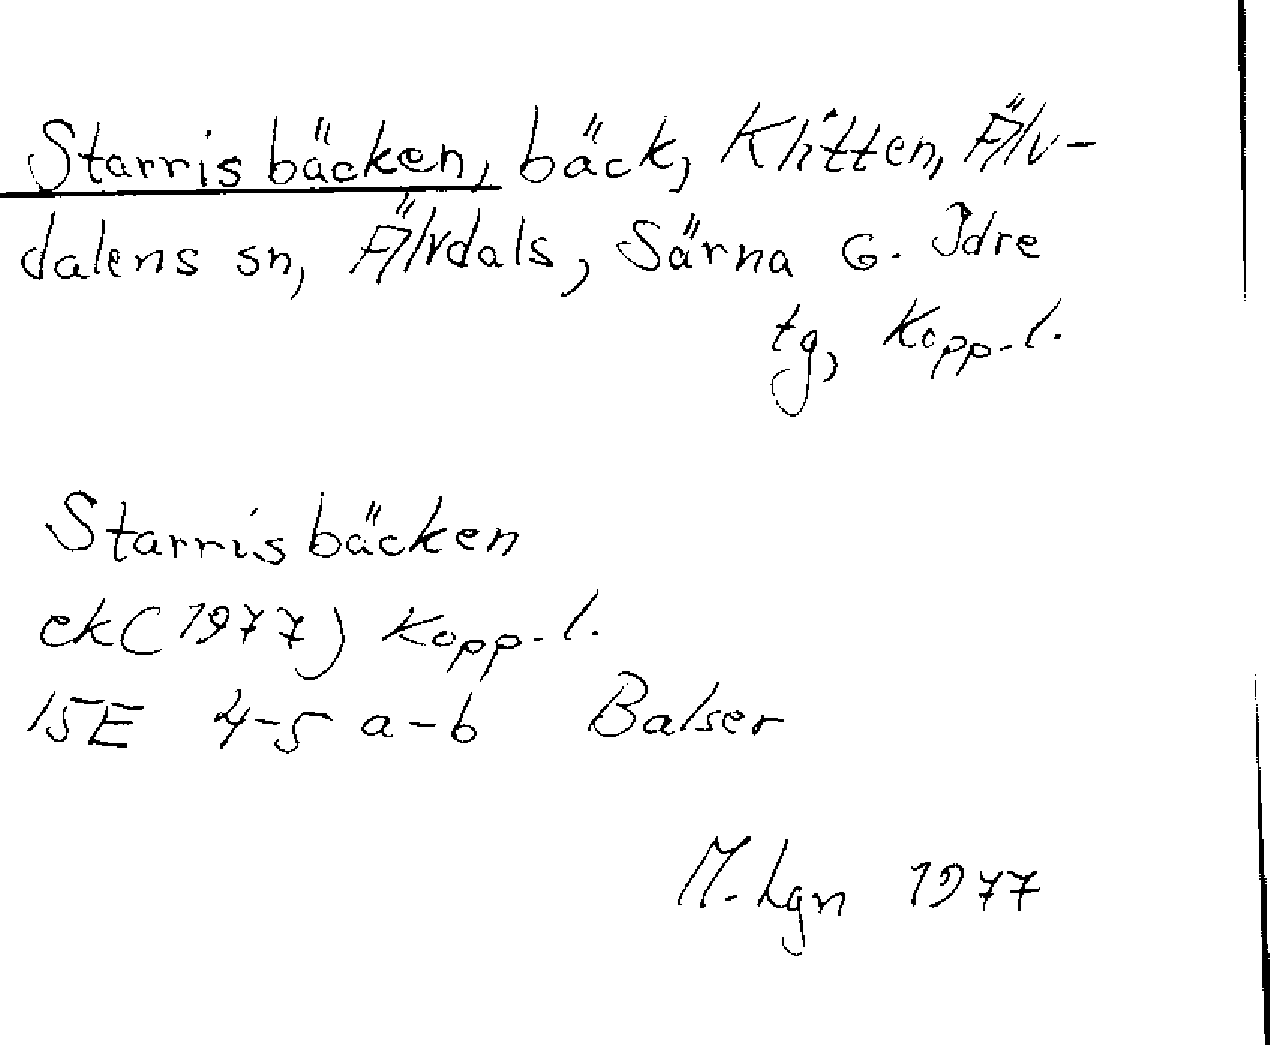 Starrisbäcken, bäck, Klitten, Älv-
dalens sn, Älvdals, Särna o. Idre
tg, Kopp-l.
Starrisbäcken
ek (1977) Kopp-l.
15E 4-5 a-b Balser
M. Lgn 1977